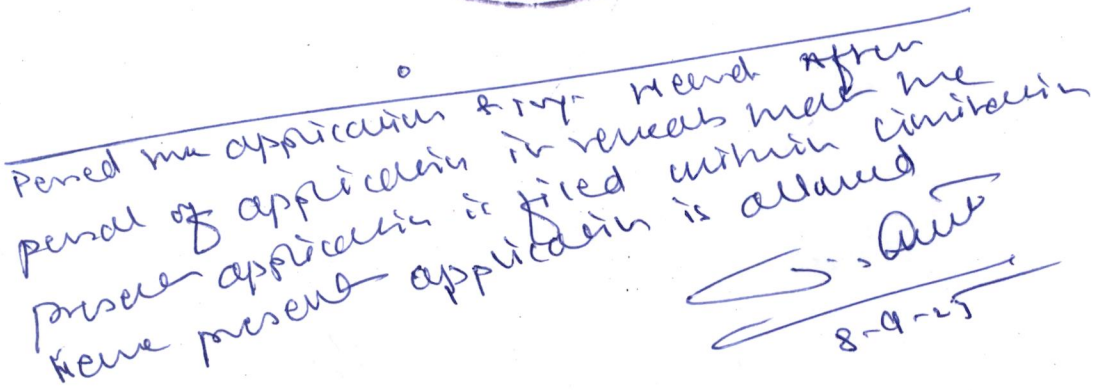 Perused the application & says. Heard After
perusal of application it reveals that the
present application is filed within limitation
Hence present application is allowed
8-9-25